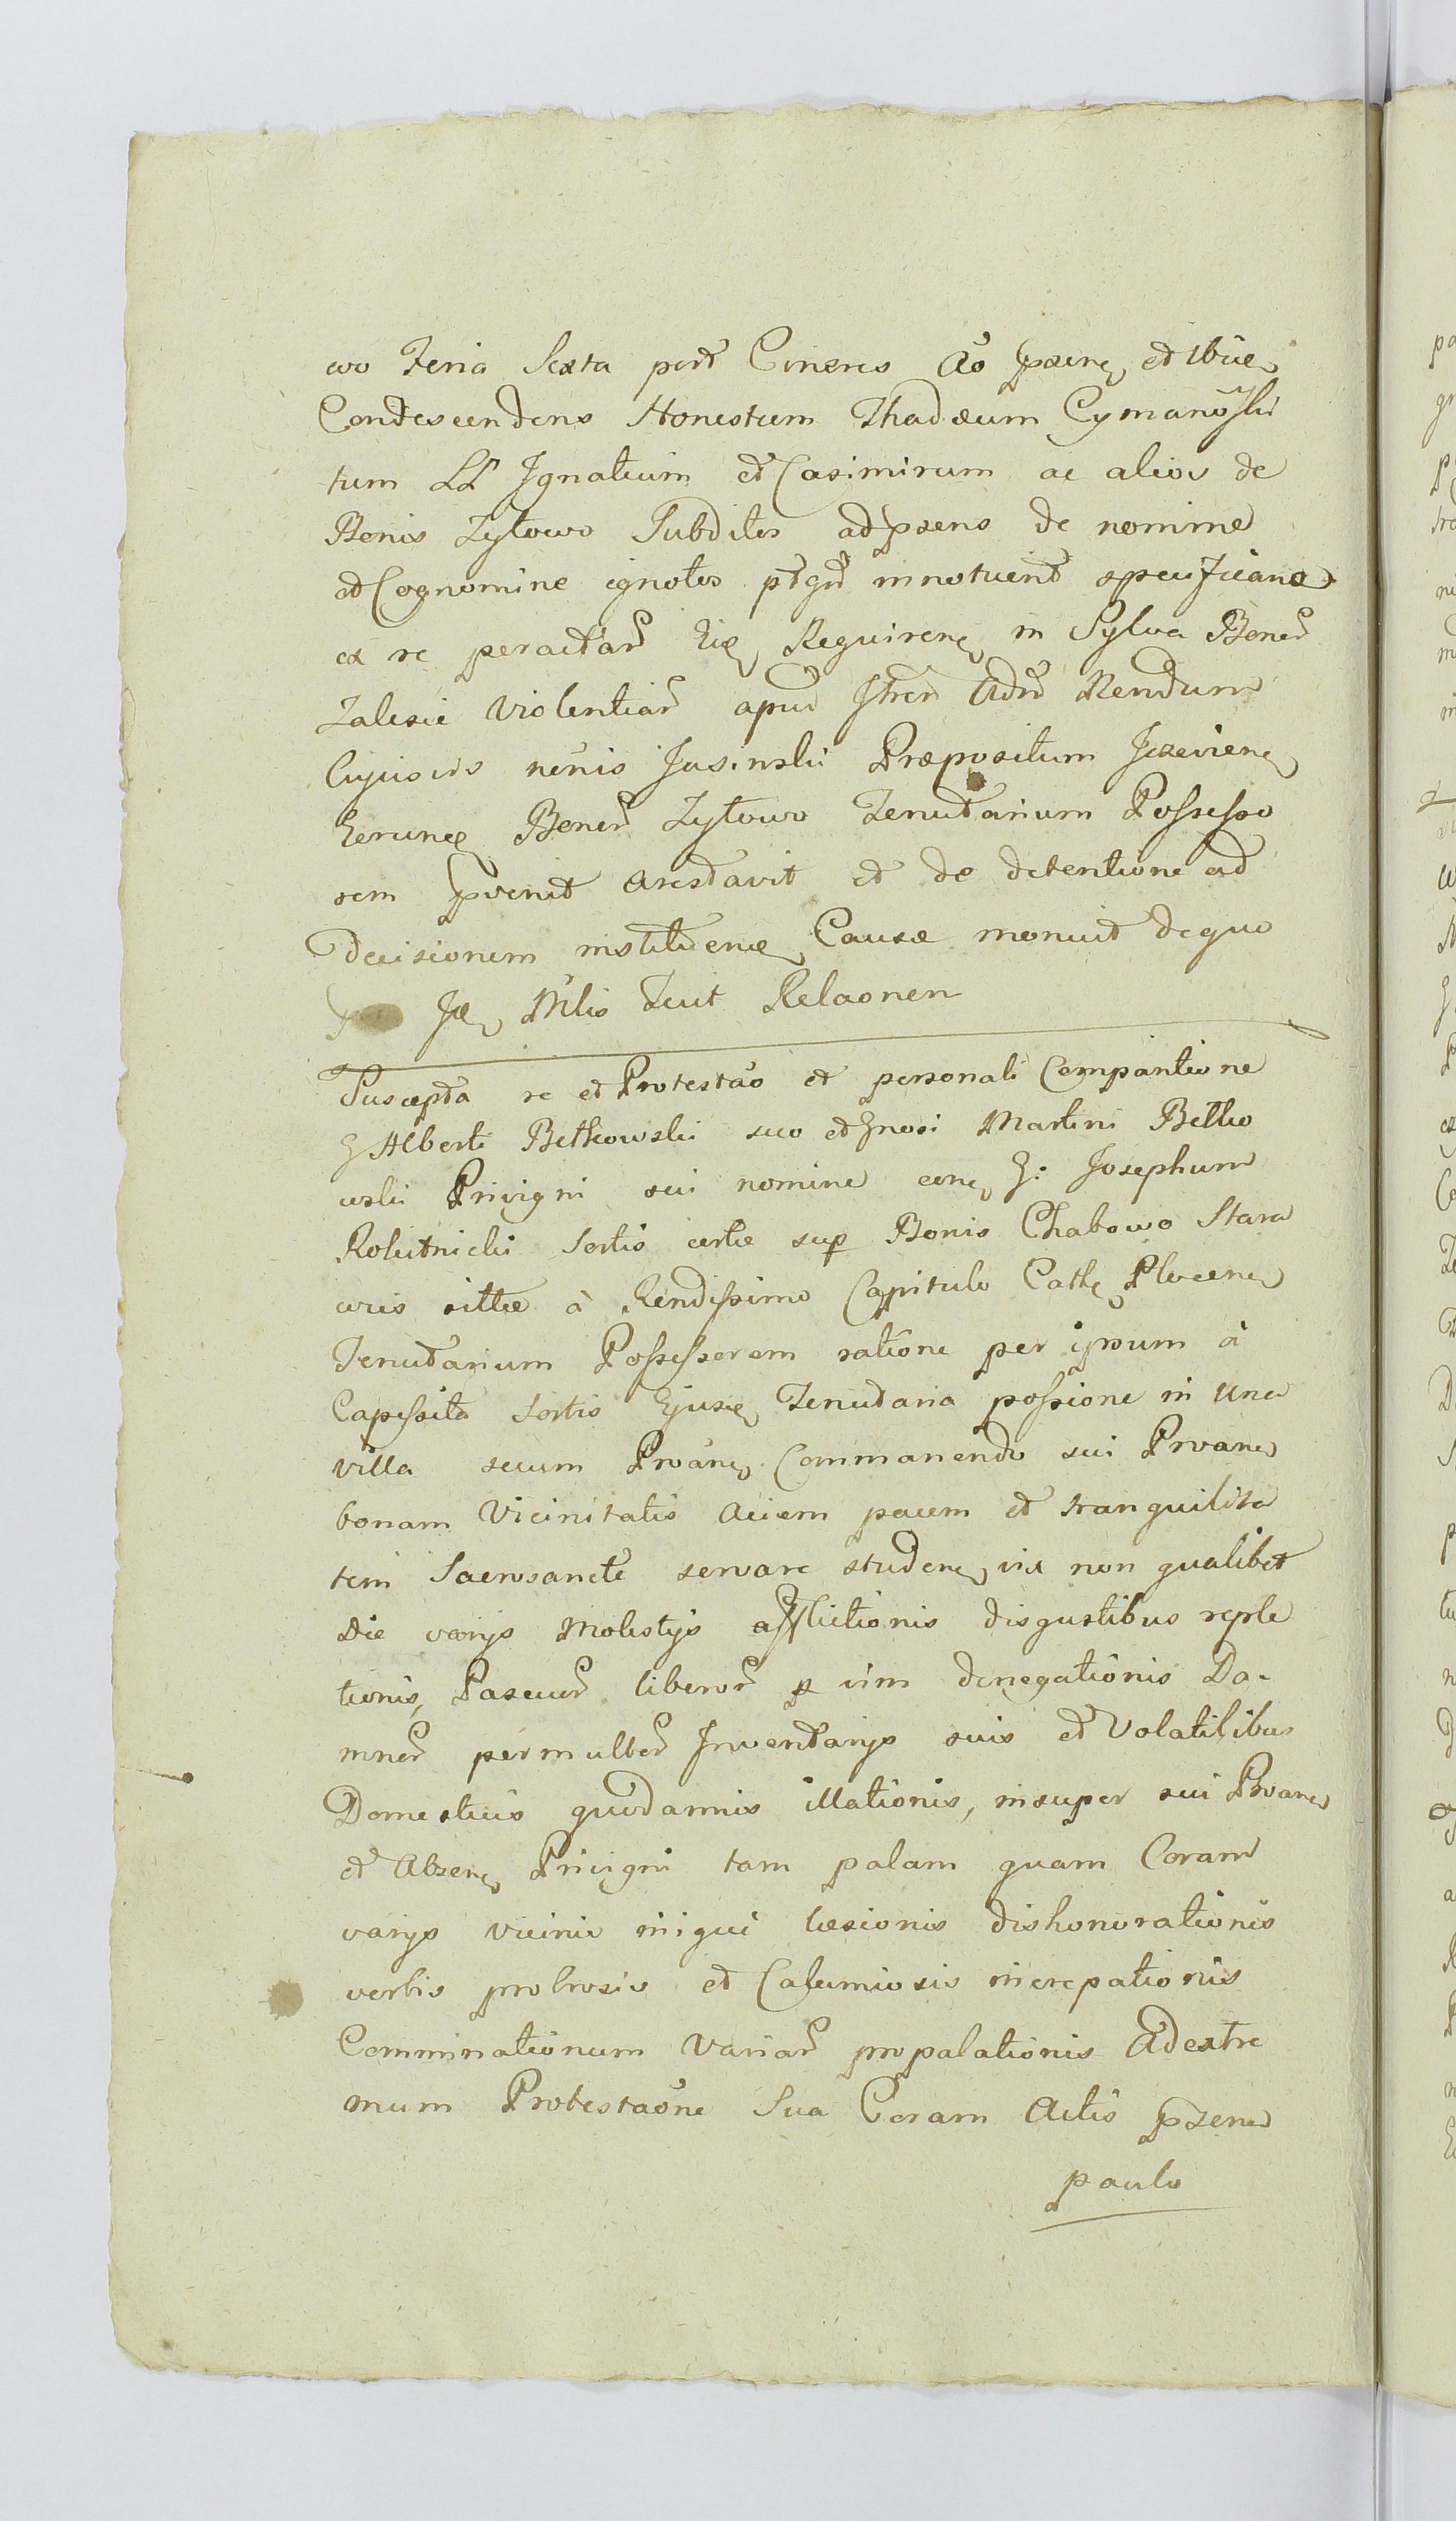 wo Feria Sexta post Cineres Ao psene et ibiq
Condescendens Honestum Thadæum Cymanoski
tum LL Ignatium et Casimirum ac alios de
Bonis Zytowo Subditos ad psens de nomine
et Cognomine ignotos ptqm innotuerit specificanos
ex re peractar Eiq Requirenq in Sylva Bonor
Zalesie violentiar apud Adm Rendum
Cujusvis nenis Jasinski Præpositum Jezeviens
Eorunq Bonor Zytowo Tenutarium Possesso
rem pvenit arestavit et de detentione ad
decisionem instituenæ Causæ monuit de quo
Idq Mlis Fecit Relaonen
Suscepta re et Protestao et personali Compartione
G Alberti Betkowski suo et Gnosi Martini Betko
wski Privigni sui nomine conq G: Josephum
Rokitnicki Sortis certæ sup Bonis Chabowo Stara
wies sittæ à Rendissimo Capitulo Cathe Plocene
Tenutarium Possessorem ratione per ipsum à
Capessita Sortis Ejusq Tenutaria possione in una
villa secum Proane Commanendo sui Proane
bonam Vicinitatis aciem pacem et tranquilita
tem Sacrosancte servare studene, vix non qualibet
Die varijs Molestijs afflictionis disgustibus reple
tionis, Pascuor liberor p vim denegationis Da-
mnor permultor Inventarijs suis et Volatilibus
Domesticis quodamnis illationis, insuper sui Proane
et absene Privigni tam palam quam Coram
varijs vicinis iniqui læsionis dishonorationis
verbis probrosis et Calumiosis increpationis
Comminationum variar propalationis Ad extre
mum Protestaone Sua Coram Actis psene
paulo